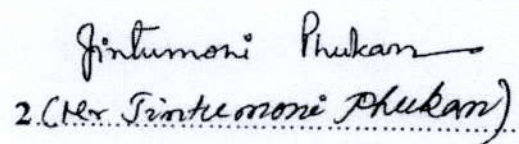 Jintumoni Phukan
2. (Mr Jintumoni Phukan)